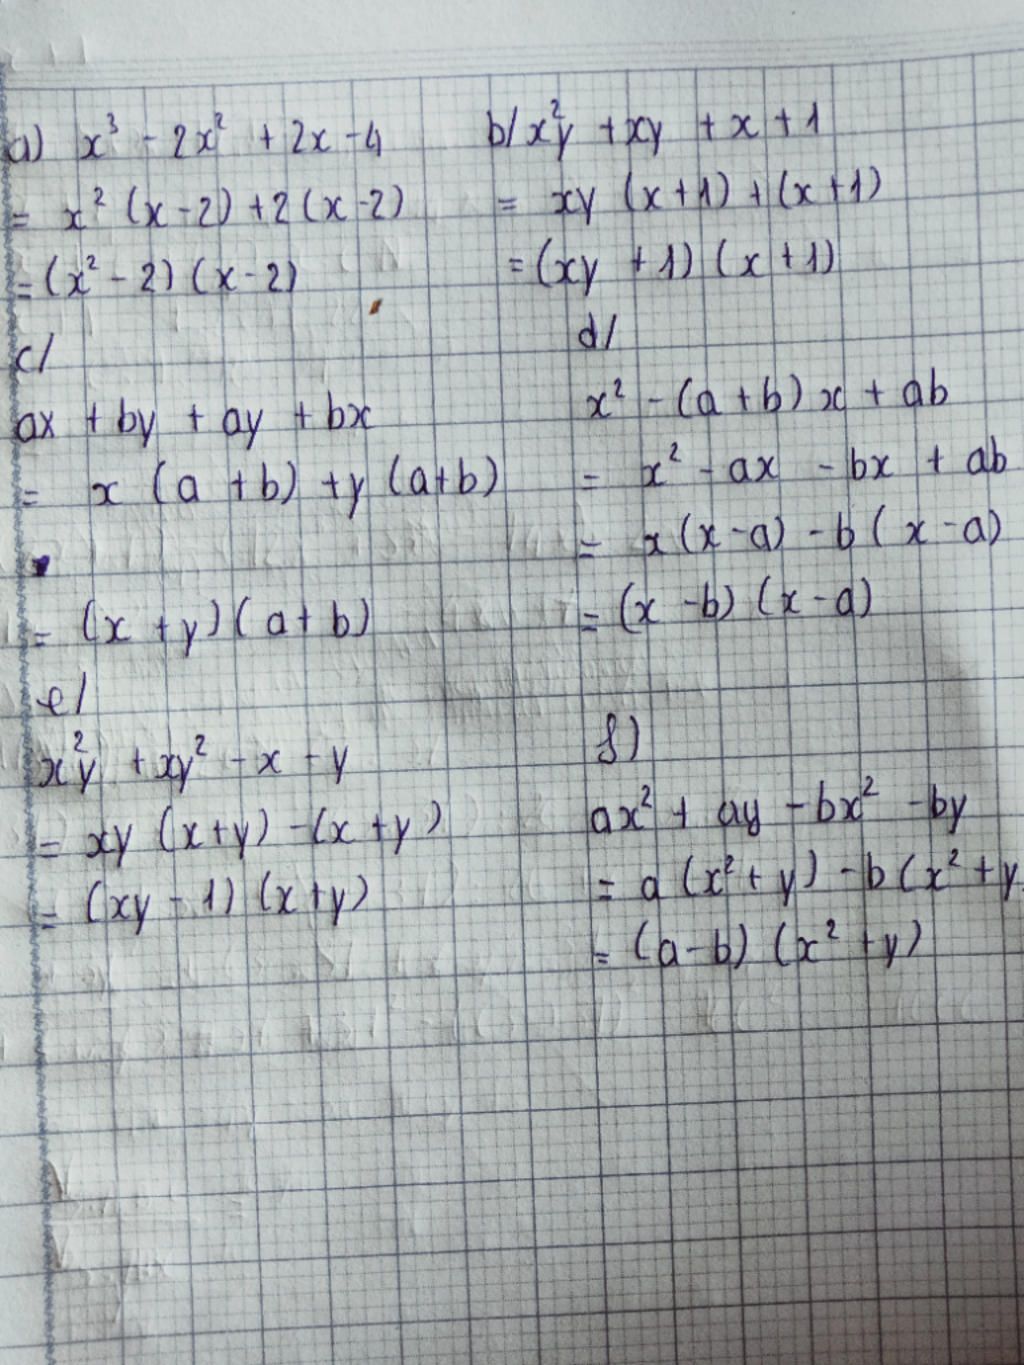 a) x³ - 2x² + 2x - 4
= x² (x - 2) + 2 (x - 2)
= (x² - 2) (x - 2)
b/ x²y + xy + x + 1
= xy (x + 1) + (x + 1)
= (xy + 1) (x + 1)
c/
ax + by + ay + bx
= x (a + b) + y (a + b)
= (x + y) (a + b)
d/
x² - (a + b) x + ab
= x² - ax - bx + ab
= x (x - a) - b (x - a)
= (x - b) (x - a)
e/
x²y + xy² - x - y
= xy (x + y) - (x + y)
= (xy - 1) (x + y)
f)
ax² + ay - bx² - by
= a (x² + y) - b (x² + y
= (a - b) (x² + y)